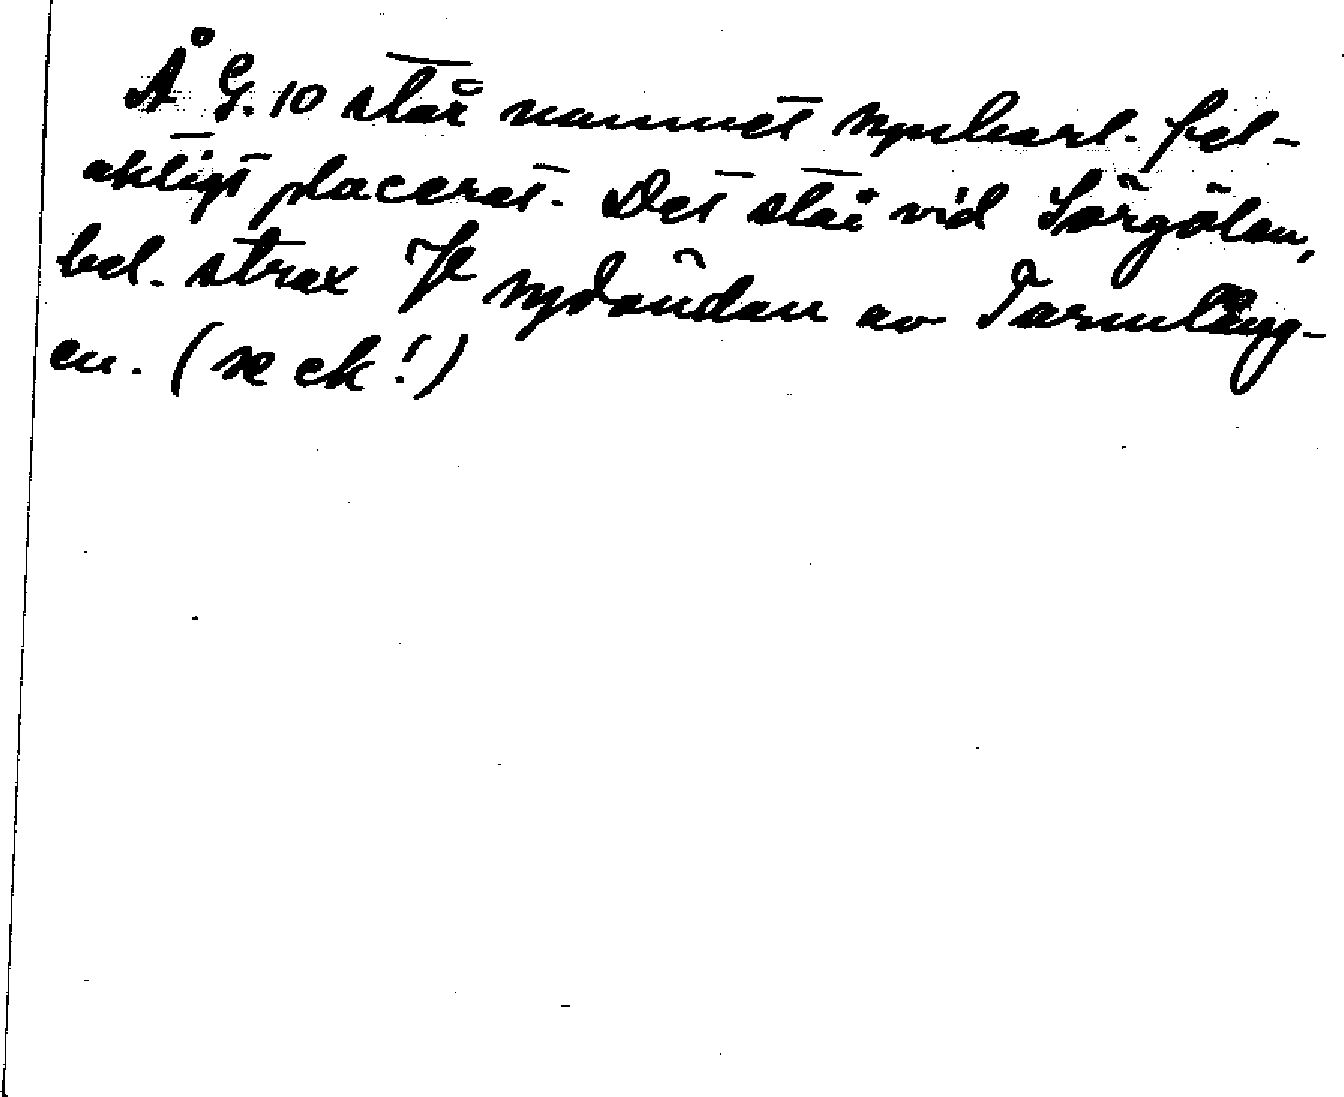 Å G. 10 står namnet synbarl. fel-
aktigt placerat. Det står vid Sörgölen,
bel. strax V sydändan av Tarmläng-
en. (se ek!)